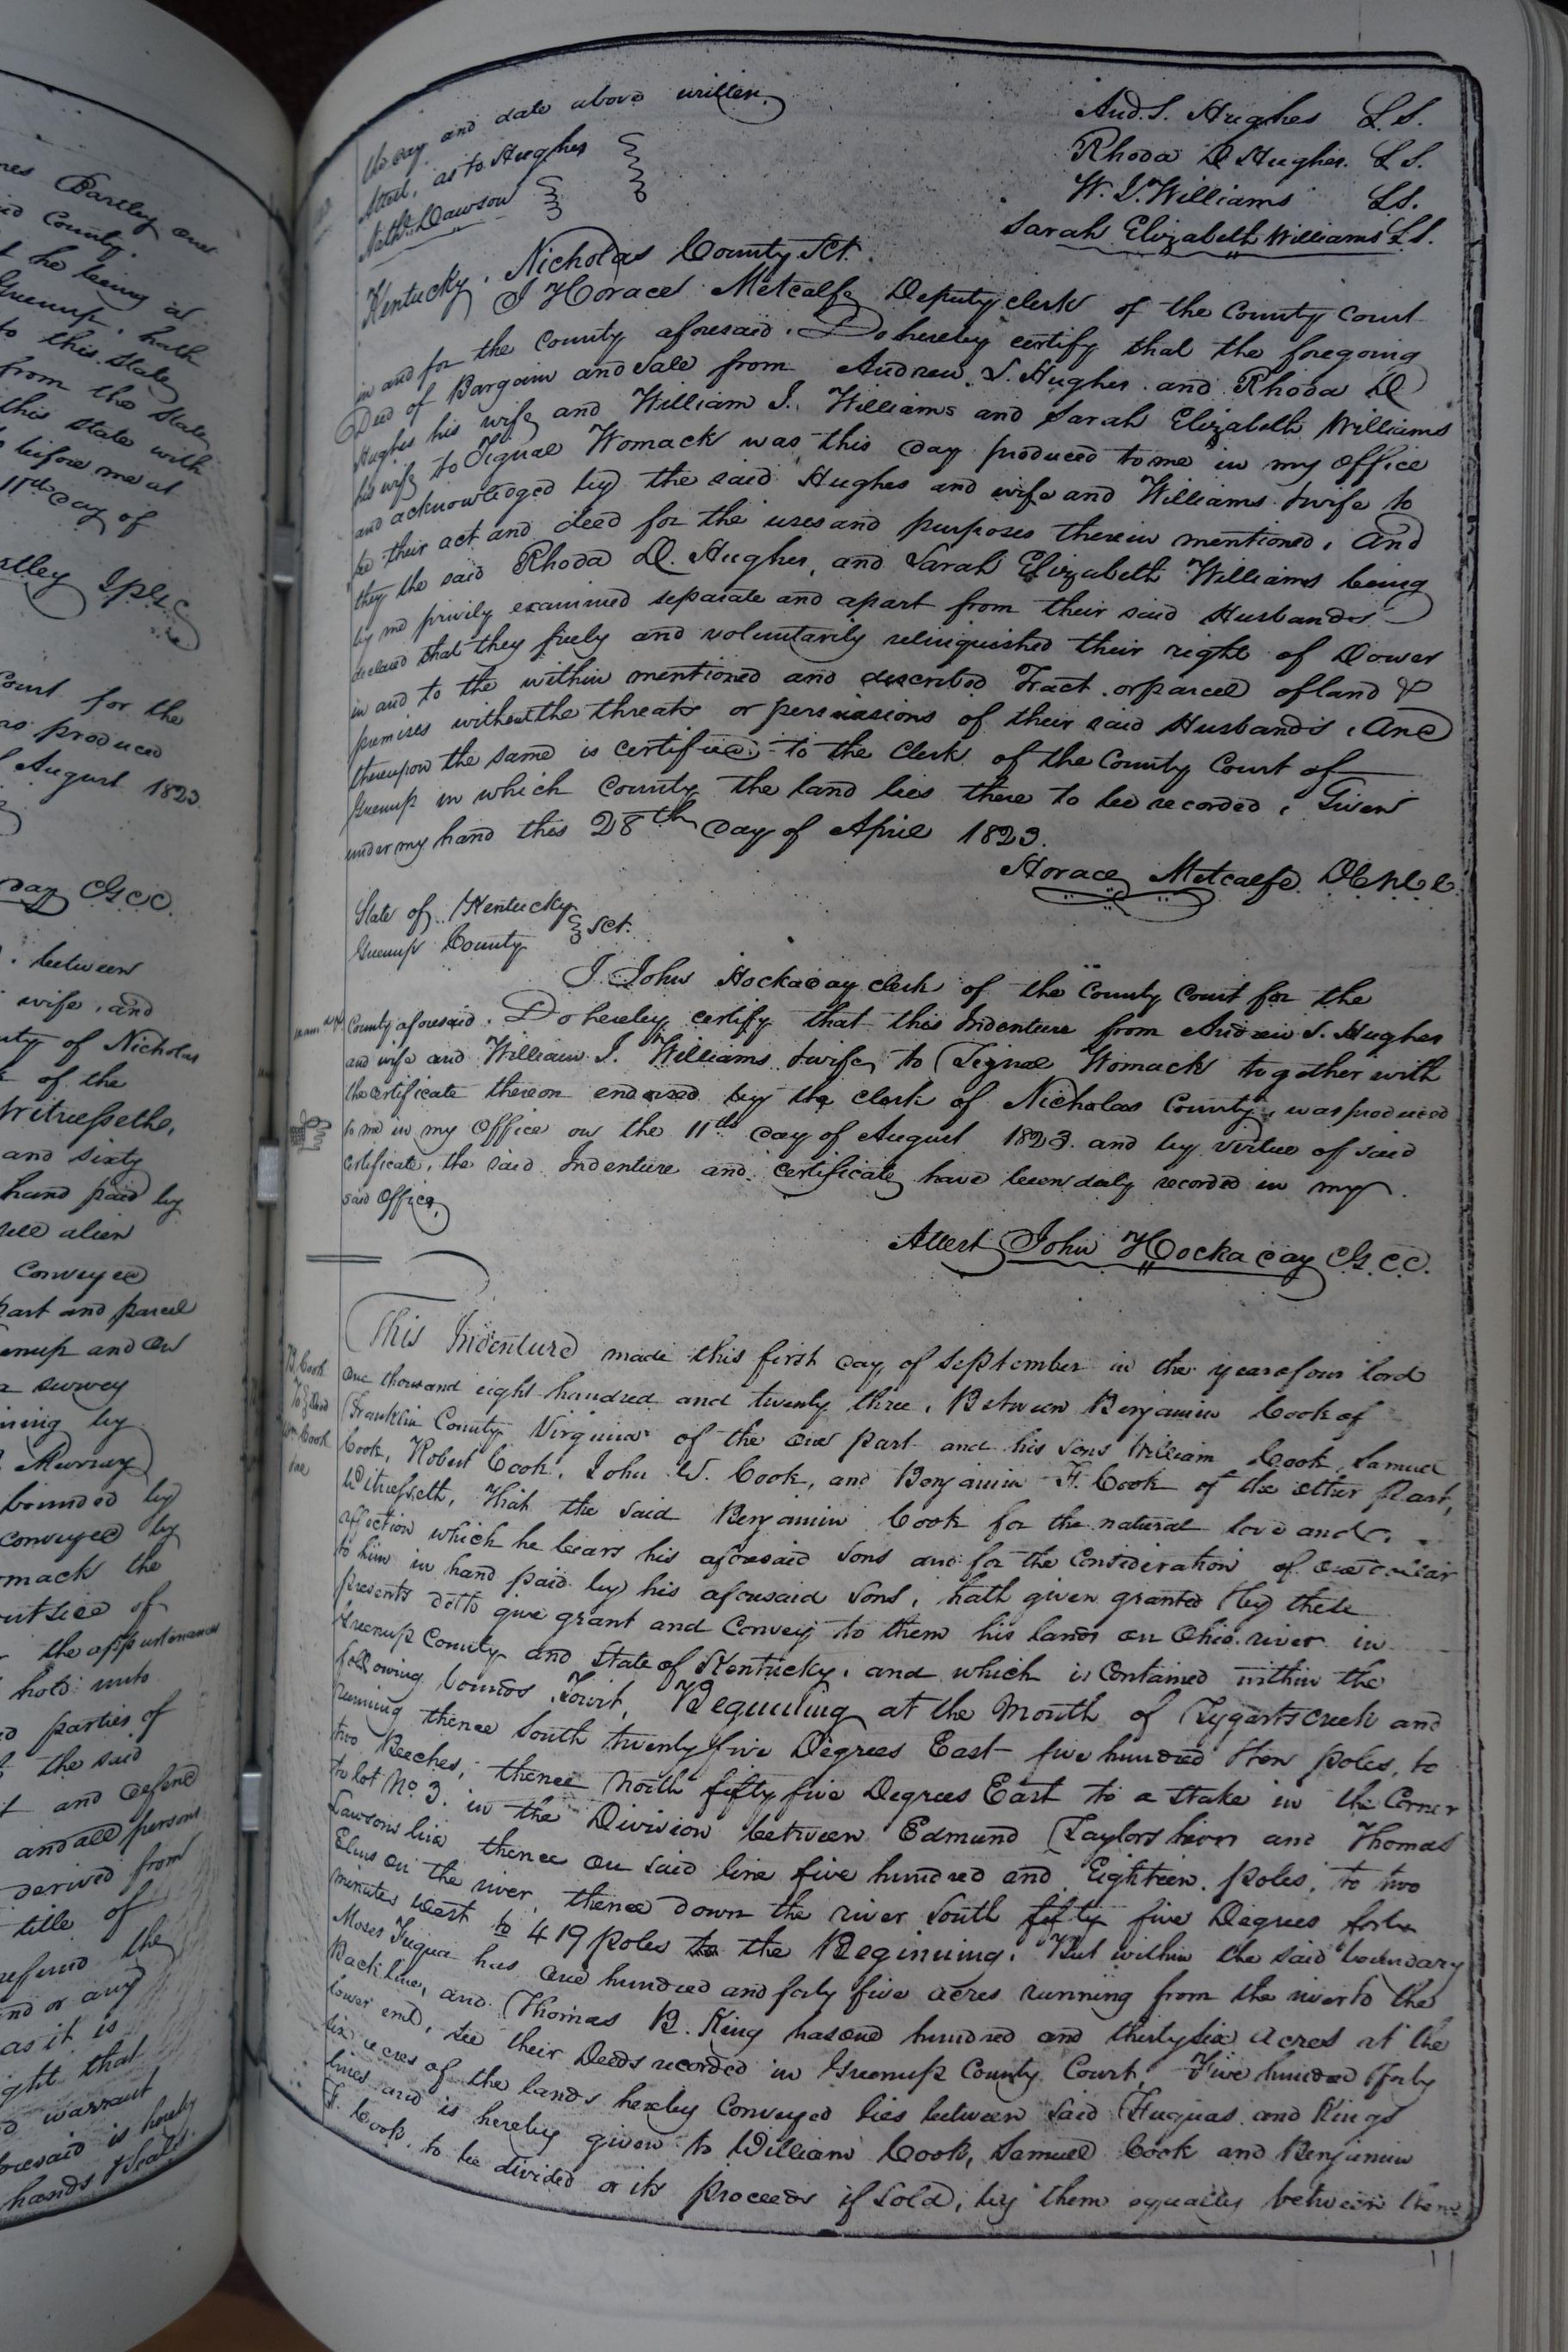 nes Bartley one
County.
t he being at
Greenup. hath
to this State
from the State
this State with
before me at
11th day of
Court for the
produced
August 1823
day GCC.
between
wife, and
of Nicholas
of the
Witnesseth,
and sixty
hand paid by
alien
Conveyed
part and parcel
and on
survey
by
Murray
bounded by
conveyed by
mack the
of
the appurtenances
hold unto
parties of
the said
and defend
and all persons
derived from
title of
refund the
and or any
as it is
that
warrant
aforesaid is hereby
hands & seals
the day and date above written.
Attest, as to Hughes
Nathl. Dawson
And. S. Hughes L.S.
Rhoda D Hughes. L S.
W. I. Williams LS.
Sarah Elizabeth Williams L.S.
Kentucky, Nicholas County Sct.
I Horace Metcalfe Deputy clerk of the County Court
in and for the County aforesaid. Do hereby certify that the foregoing
Deed of Bargain and Sale from Andrew. S. Hughes and Rhoda D
Hughes his wife and William I. Williams and Sarah Elizabeth Williams
his wife to Tignal Womack was this day produced to me in my office
and acknowledged by the said Hughes and wife and Williams & wife to
be their act and deed for the uses and purposes therein mentioned, And
they the said Rhoda D. Hughes, and Sarah Elizabeth Williams being
by me privily examined separate and apart from their said Husbands
declared that they freely and voluntarily relinquished their right of Dower
in and to the within mentioned and described Tract or parcel of land &
premises without the threats or persuasions of their said Husbands, And
thereupon the same is certified to the Clerk of the County Court of
Greenup in which County the land lies there to be recorded, Given
under my hand this 28th day of April 1823.
Horace Metcalfe D C N C C.
State of Kentucky
Greenup County Sct.
I John Hockaday clerk of the County Court for the
County aforesaid. Do hereby certify that this Indenture from Andrew S. Hughes
and wife and William I. Williams & wife, to Tignal Womack together with
the certificate thereon endorsed by the clerk of Nicholas County, was produced
to me in my Office on the 11th day of August 1823. and by virtue of said
certificate, the said Indenture and certificate have been duly recorded in my
said Office,
Attest John Hockaday G.CC.
B. Cook
To
Wm Cook
This Indenture made this first day of September in the year of our lord
one thousand eight hundred and twenty three, Between Benjamin Cook of
Franklin County Virginia of the one part and his sons William Cook, Samuel
Cook, Robert Cook, John W. Cook, and Benjamin F. Cook of the other part,
Witnesseth, That the said Benjamin Cook for the natural love and
affection which he bears his aforesaid Sons and for the Consideration of one dollar
to him in hand paid by his aforesaid Sons, hath given granted & by these
presents doth give grant and Convey to them his lands on Ohio river in
Greenup County and State of Kentucky, and which is Contained within the
following bounds, Towit, Beginning at the Mouth of Tygarts creek and
running thence South twenty five Degrees East five hundred & ten poles, to
two Beeches, thence North fifty five Degrees East to a stake in the Corner
to lot No. 3. in the Division between Edmund Taylors heirs and Thomas
Lawsons line thence on said line five hundred and Eighteen poles, to two
Elms on the river, thence down the river South fifty five Degrees forty
minutes West to 419 poles to the Beginning. But within the said boundary
Moses Fuqua has one hundred and forty five acres running from the river to the
Back line, and Thomas B. King has one hundred and thirty six acres at the
lower end, see their Deeds recorded in Greenup County Court, Five hundred & forty
six acres of the lands hereby Conveyed lies between said Fuquas and Kings
lines and is hereby given to William Cook, Samuel Cook and Benjamin
F. Cook. to be divided or its proceeds if Sold, by them equally between them